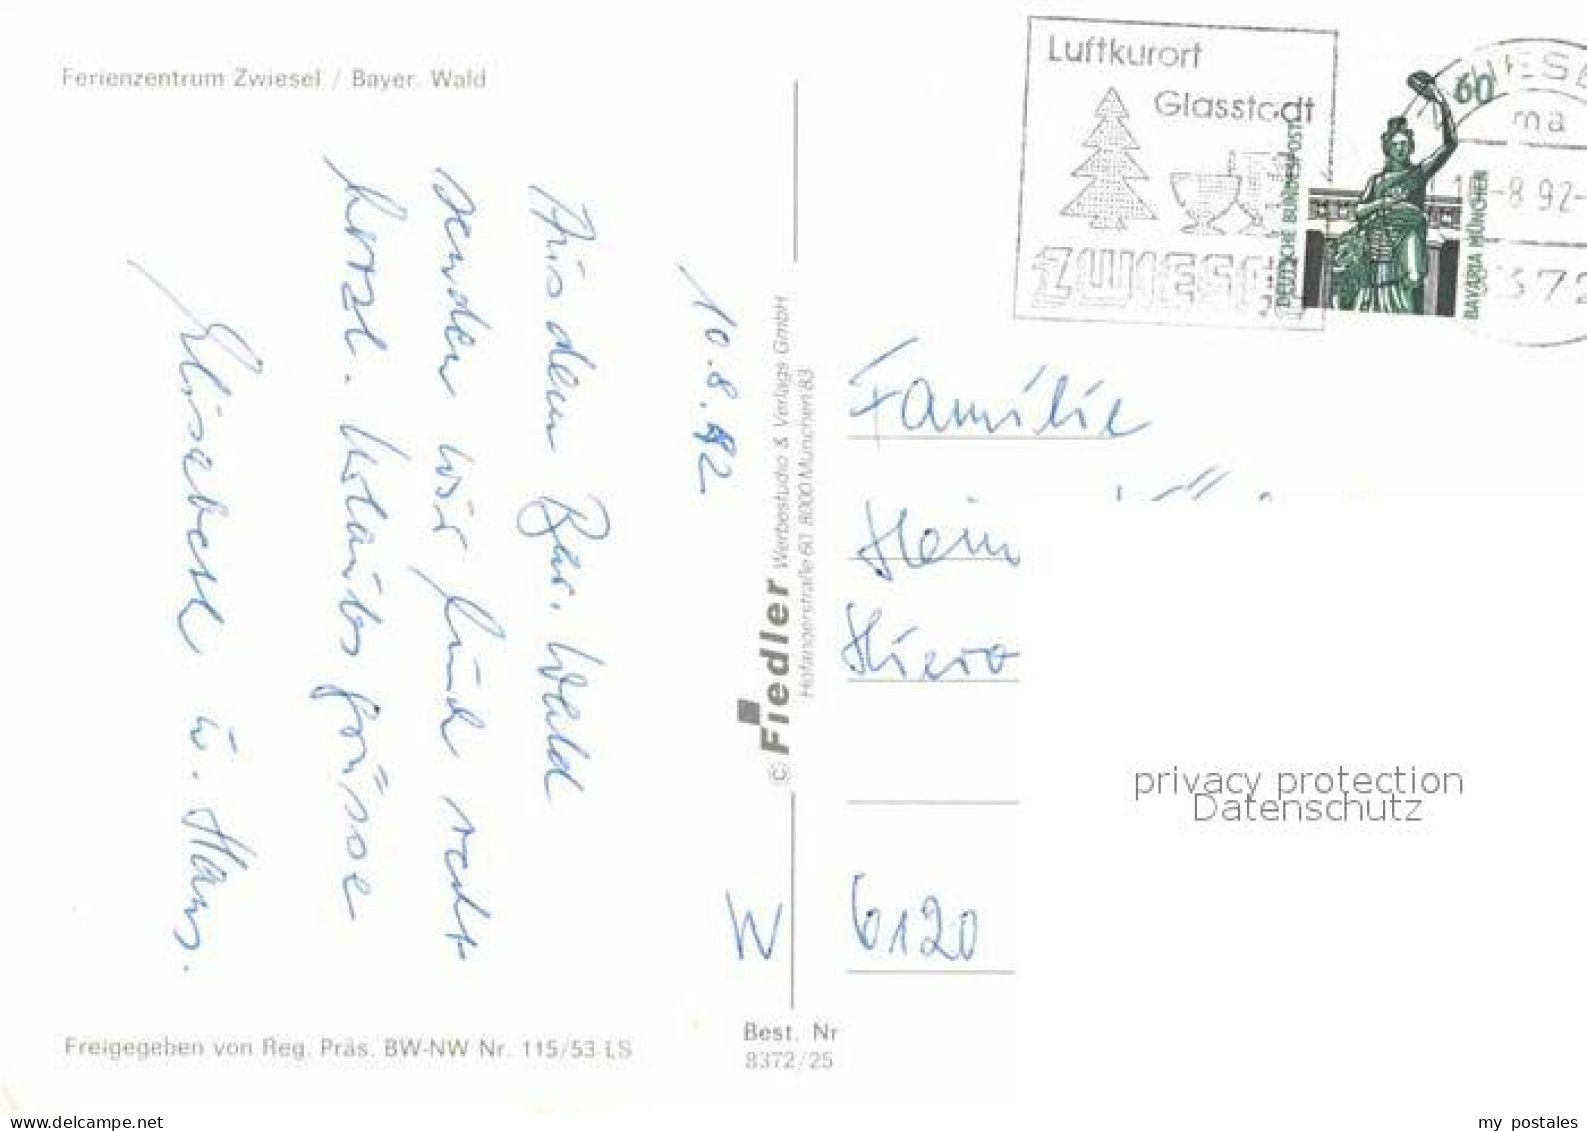 Ferienzentrum Zwiesel / Bayer. Wald
10.8.92
Aus dem Bay. Wald
senden wir Euch recht
herzl. Urlaubsgrüsse
Elisabeth u. Hans.
© Fiedler Werbestudio & Verlags GmbH
Hofangerstraße 60 8000 München 83
Freigegeben von Reg. Präs. BW-NW Nr. 115/53 LS
Best. Nr
8372/25
Luftkurort
Glasstadt
ZWIESEL
DEUTSCHE BUNDESPOST
60
BAVARIA MÜNCHEN
ma
-8 92-
372
Familie
Hein
W 6120
privacy protection
Datenschutz
www.delcampe.net
my_postales